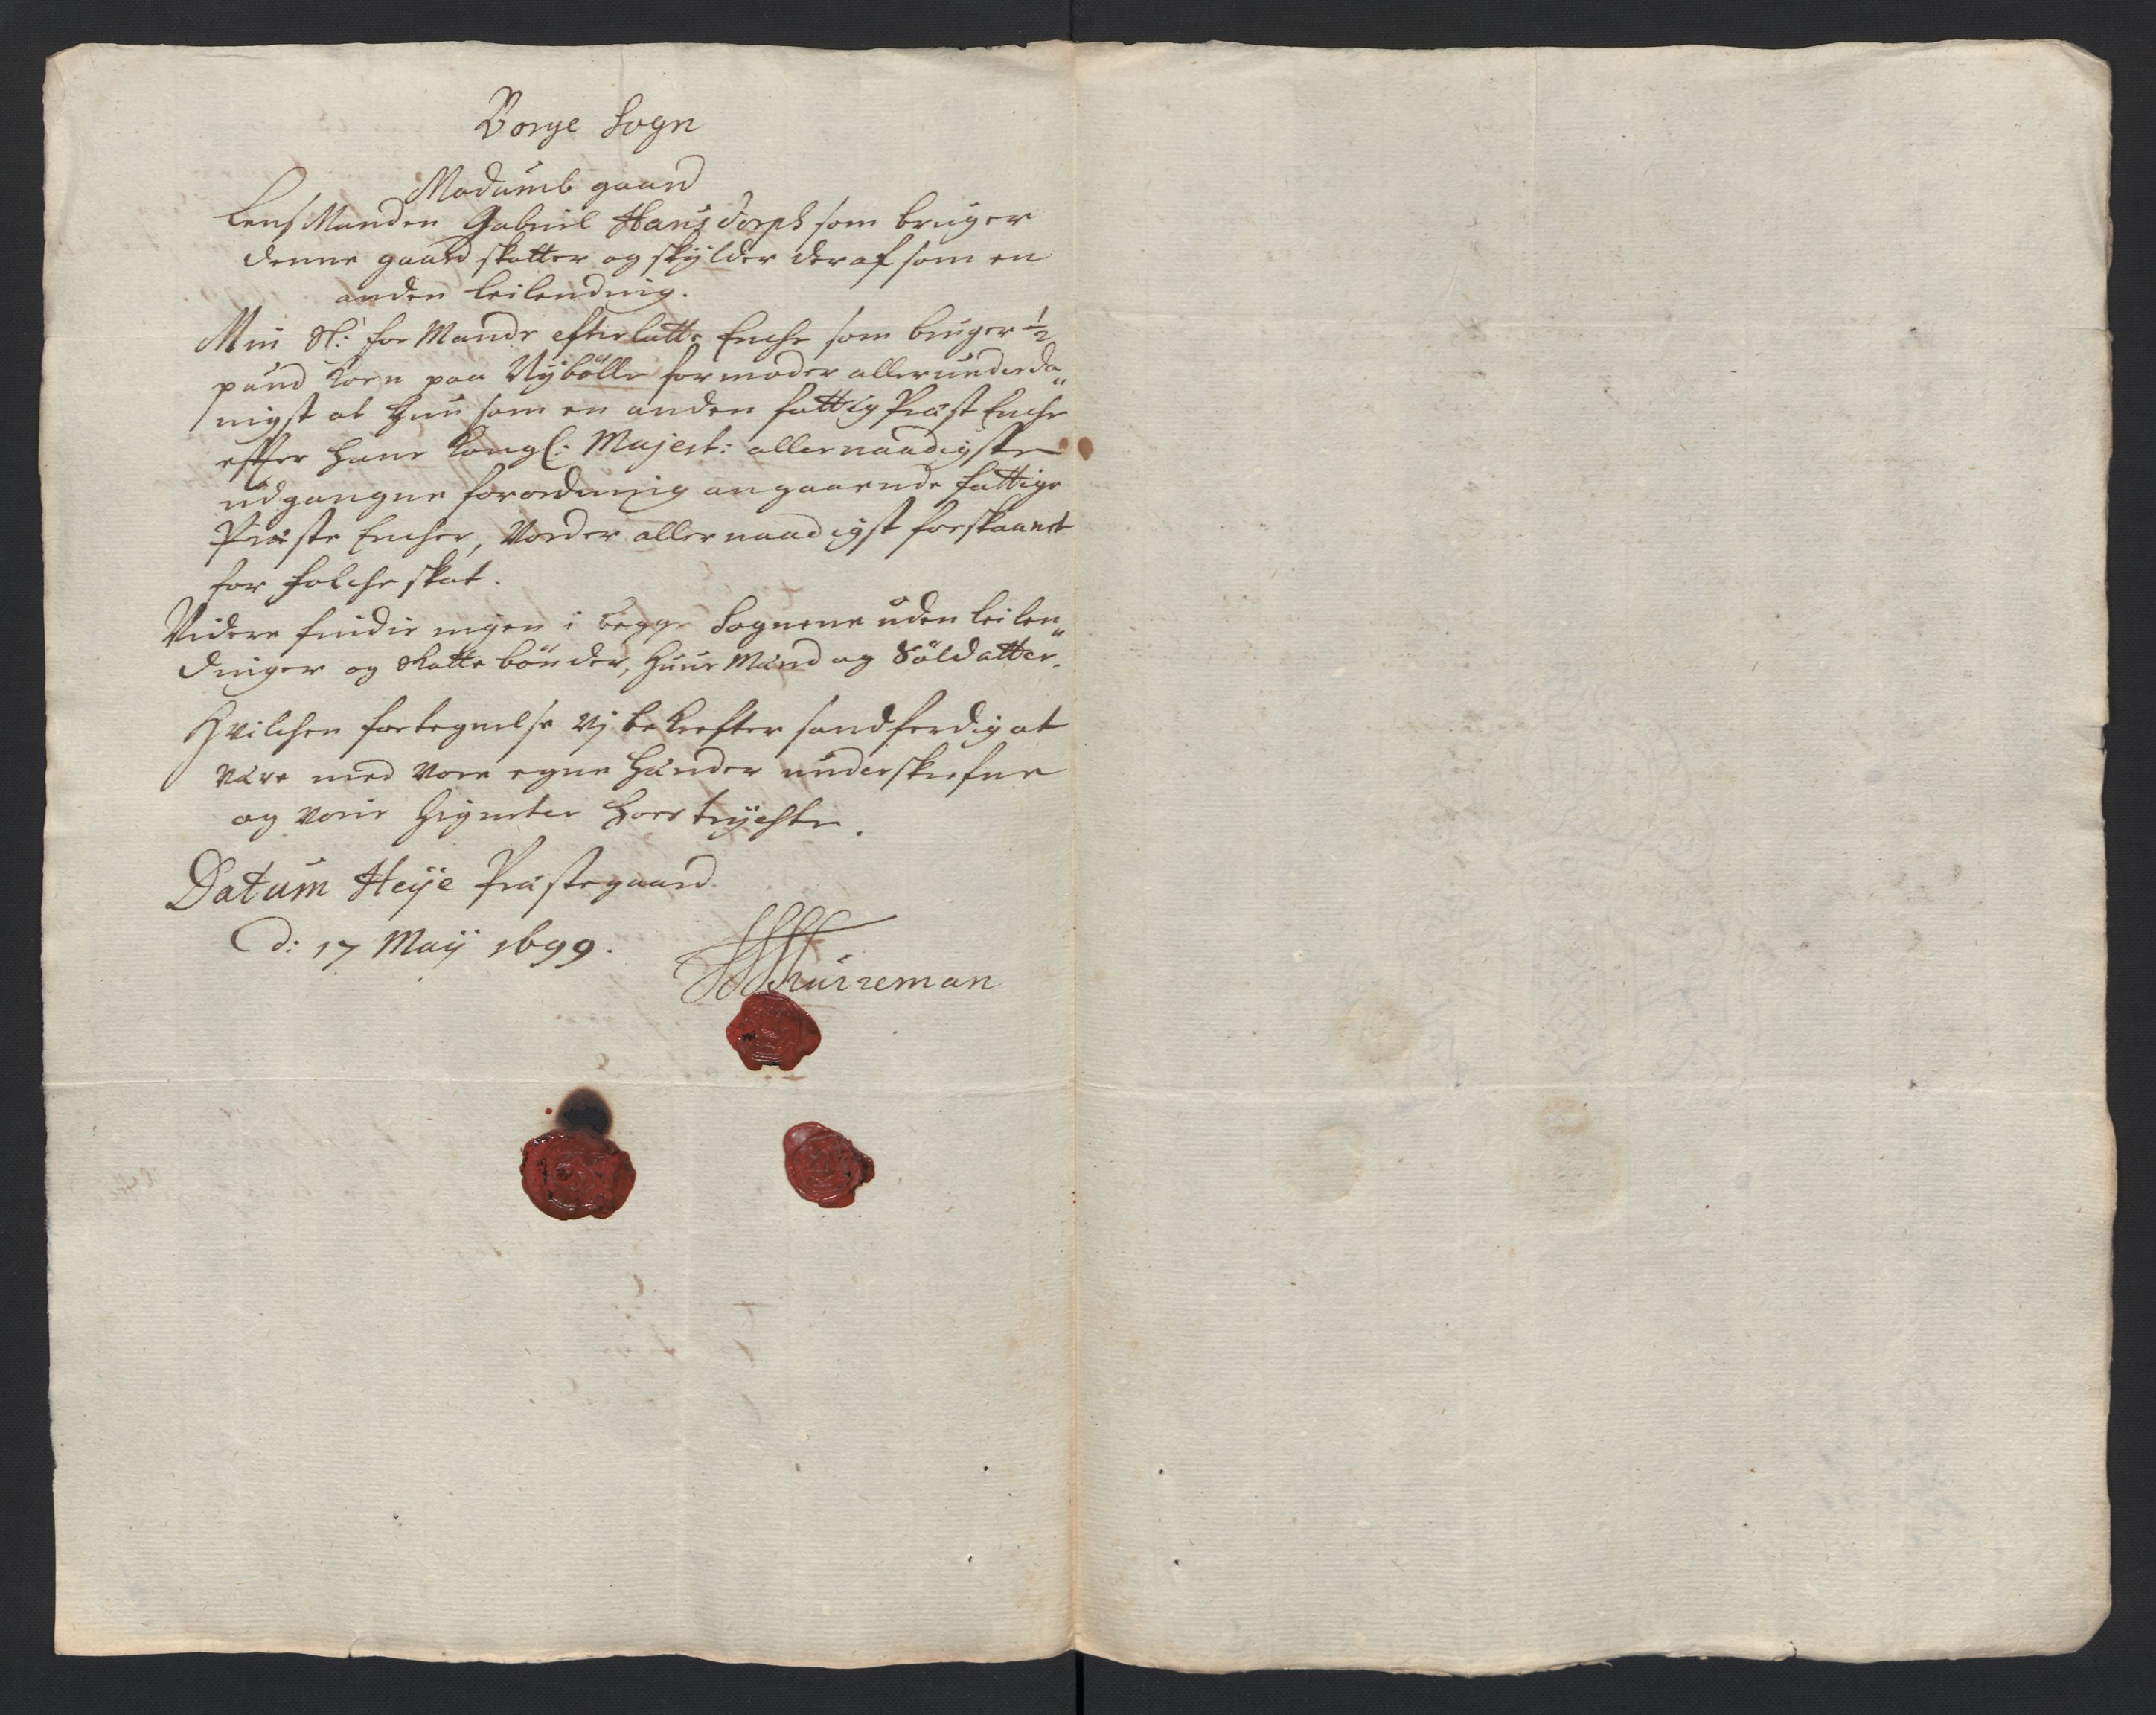 Borge Sogn
Modumb gaard
Lens Manden Gabriel Hansdorph som bruger
denne gaard skatter og skylder deraf som en
anden leilending.
Min Sl: for Mands efterlatte Enche som bruger ½
pund Korn paa Nybölle formoder allerunderda„
nigst at hun som en anden fattig Præst Enche
effter Hans Kongl: Majest: allernaadigste
udgangne forordning angaaende fattige
Præste Encher, Vorder allernaadigst forskaanet
for folche skat.
Videre findis ingen i begge Sognene uden leilen„
dinger og Skatte bönder, Huus Mænd og Söldatter.
Hvilchen fortegnelse Vj bekrefter sandferdig at
være med Vore egne Hænder underskrefne
og Voris Signeter hoes trychte.
Datum Heÿe Præstegaard
d: 17 Maÿ 1699.